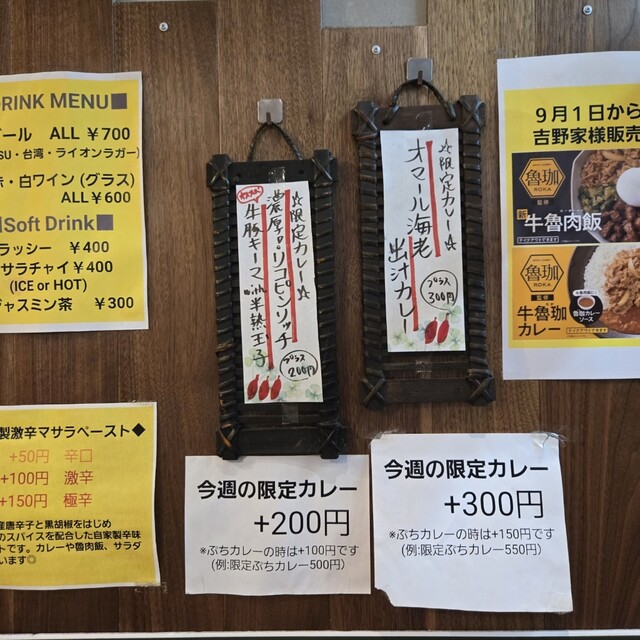 DRINK MENU■
ール ALL ￥700
SU・台湾・ライオンラガー)
・白ワイン (グラス)
ALL ￥600
Soft Drink■
ラッシー ￥400
サラチャイ ￥400
(ICE or HOT)
ジャスミン茶 ￥300
製激辛マサラペースト◆
+50円 辛口
+100円 激辛
+150円 極辛
産唐辛子と黒胡椒をはじめ
のスパイスを配合した自家製辛味
トです。カレーや魯肉飯、サラダ
います◎
☆限定カレー☆
濃厚パリコピンリッチ
オススメ!
牛豚キーマwith半熟玉子
プラス
200円
今週の限定カレー
+200円
※ぷちカレーの時は+100円です
(例:限定ぷちカレー500円)
☆限定カレー☆
オマール海老
出汁カレー
プラス
300円
今週の限定カレー
+300円
※ぷちカレーの時は+150円です
(例:限定ぷちカレー550円)
9月1日から
吉野家様販売
魯珈
ROKA
監修
牛魯肉飯
魯珈
ROKA
監修
牛魯珈
カレー
魯珈カレー
ソース